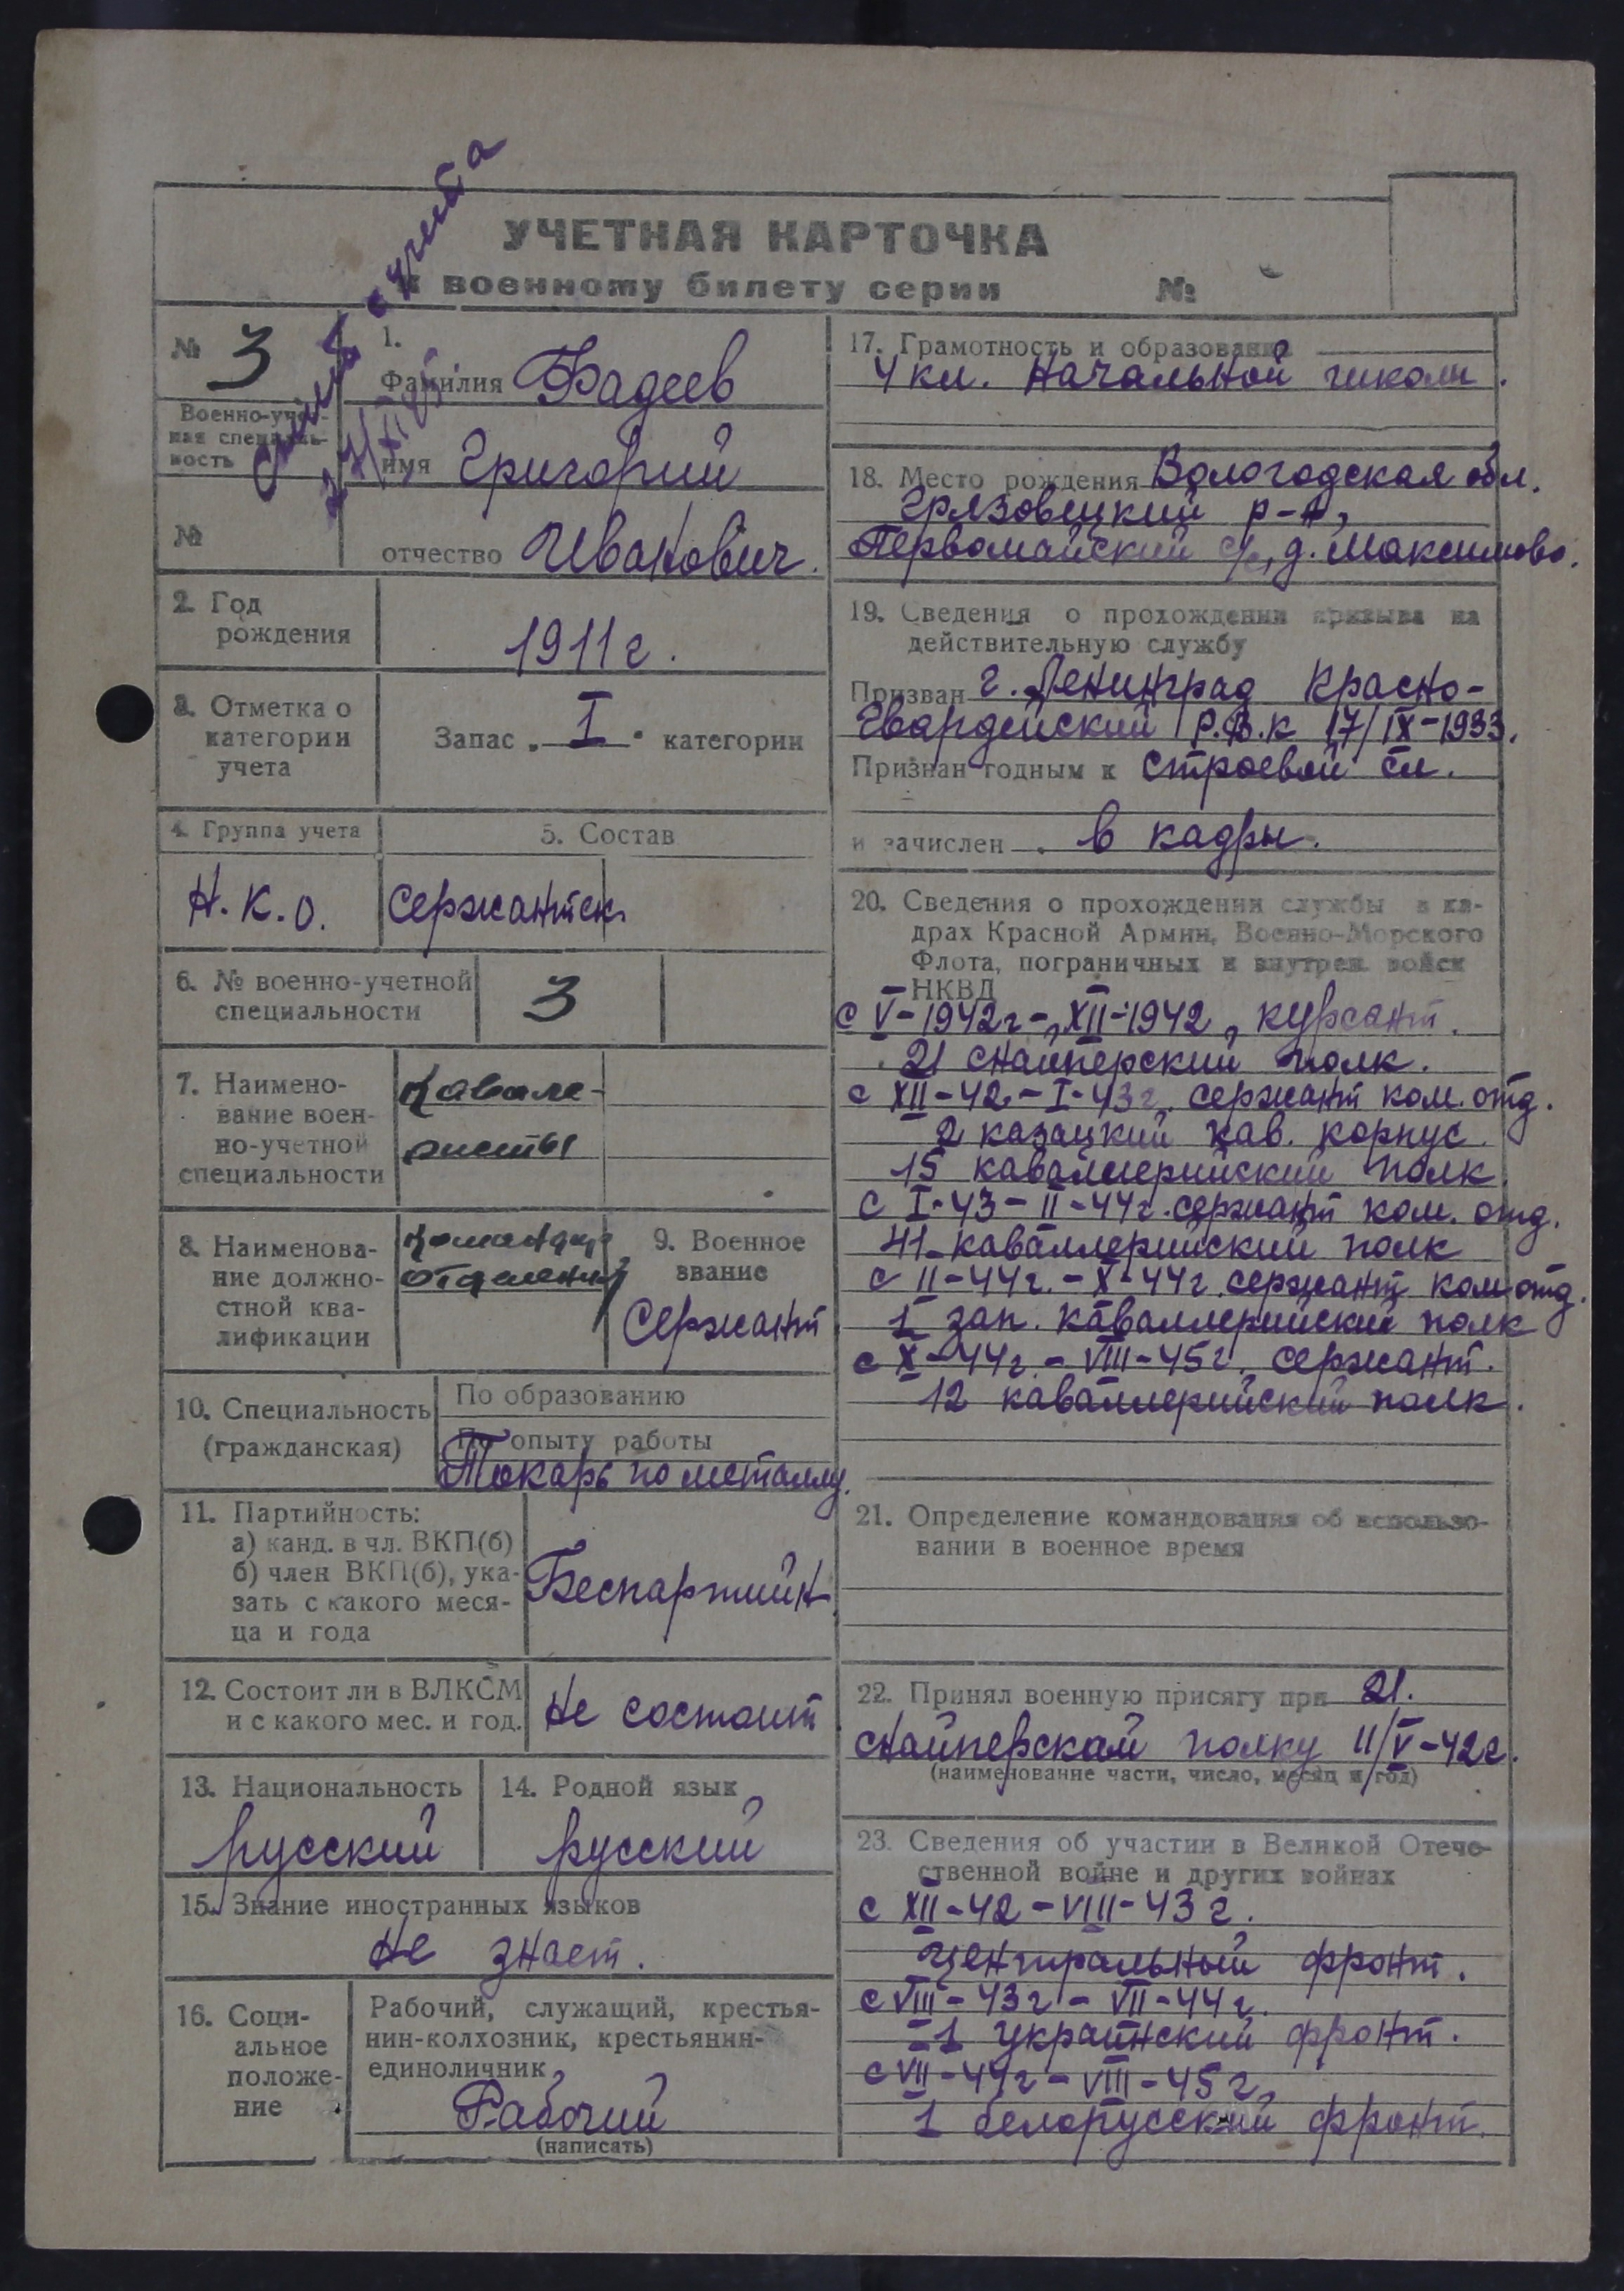 Снят с учета
УЧЕТНАЯ КАРТОЧКА
к военному билету серии №
№ 3
Военно-учет-
ная специаль-
ность
№
1.
Фамилия Фадеев
имя Григорий
отчество Иванович.
2. Год
рождения
1911 г.
3. Отметка о
категории
учета
Запас „ I " категории
4. Группа учета
Н.К.О.
5. Состав
Сержантск.
6. № военно-учетной
специальности
3
7. Наимено-
вание воен-
но-учетной
специальности
Кавале-
ристы
8. Наименова-
ние должно-
стной ква-
лификации
Командир
отделения
9. Военное
звание
Сержант
10. Специальность
(гражданская)
По образованию
По опыту работы
Токарь по металлу.
11. Партийность:
а) канд. в чл. ВКП(б)
б) член ВКП(б), ука-
зать с какого меся-
ца и года
Беспартийн.
12. Состоит ли в ВЛКСМ
и с какого мес. и год.
Не состоит
13. Национальность
русский
14. Родной язык
русский
15. Знание иностранных языков
Не знает.
16. Соци-
альное
положе-
ние
Рабочий, служащий, крестья-
нин-колхозник, крестьянин-
единоличник
Рабочий
(написать)
17. Грамотность и образование
4 кл. Начальной школы.
18. Место рождения Вологодская обл.
Грязовецкий р-н,
Первомайский с/с, д. Максимово.
19. Сведения о прохождении призыва на
действительную службу
Призван г. Ленинград Красно-
Гвардейский Р.В.К 17/IX-1933.
Признан годным к строевой сл.
и зачислен в кадры.
20. Сведения о прохождении службы в ка-
драх Красной Армии, Военно-Морского
Флота, пограничных и внутрен. войск
НКВД
с V-1942г-, XII-1942, курсант.
21 снайперский полк.
с XII-42-I-43г. сержант ком. отд.
2 казацкий кав. корпус.
15 каваллерийский полк
с I-43-II-44г. сержант ком. отд.
41 каваллерийский полк
с II-44г.-X-44г. сержант ком отд.
1 зап. каваллерийский полк
с X-44г.-VIII-45г. сержант.
12 каваллерийский полк.
21. Определение командования об использо-
вании в военное время
22. Принял военную присягу при 21.
снайперскам полку 11/V-42г.
(наименование части, число, месяц и год)
23. Сведения об участии в Великой Отече-
ственной войне и других войнах
с XII-42-VIII-43г.
Центральный фронт.
с VIII-43г-VII-44г.
1 украинский фронт.
с VII-44г-VIII-45г.
1 белорусский фронт.